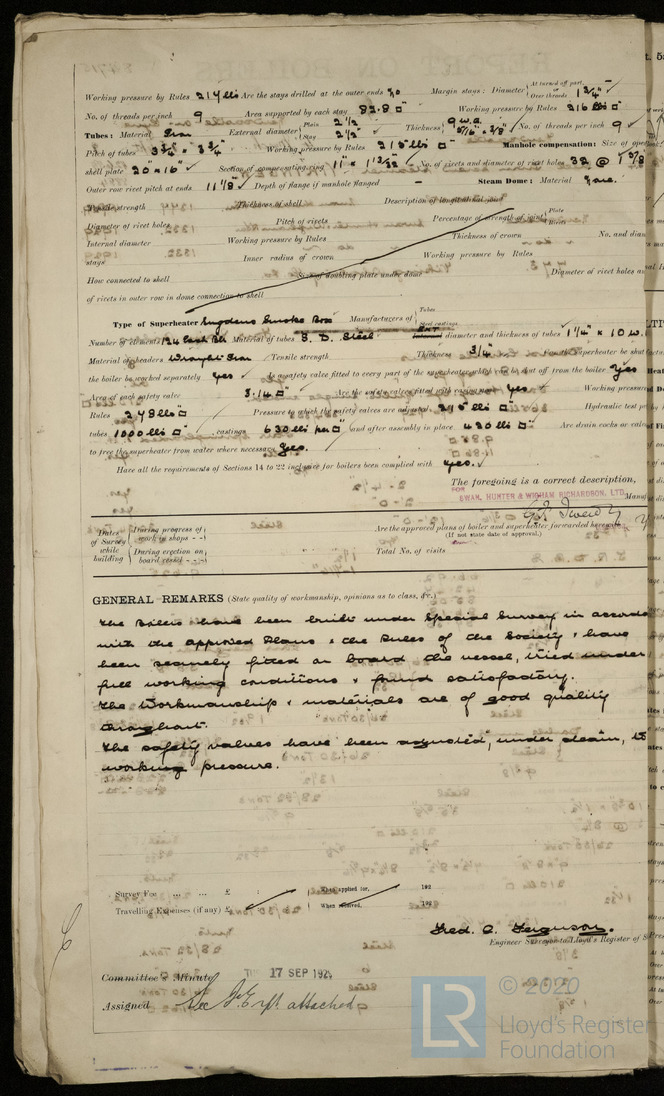 Working pressure by Rules 214 lbs Are the stays drilled at the outer ends No Margin stays: Diameter At turned off part, Over threads 1 3/4"
No. of threads per inch 9 Area supported by each stay 82.8 □" Working pressure by Rules 216 lbs □"
Tubes: Material Iron External diameter Plain 2 1/2" Stay 2 1/2" Thickness 9 w.g. 5/16" & 3/8" No. of threads per inch 9
Pitch of tubes 3 3/4" × 3 3/4" Working pressure by Rules 215 lbs □" Manhole compensation: Size of
shell plate 20" × 16" Section of compensating ring No. of rivets and diameter of rivet holes 32 @
Outer row rivet pitch at ends 11 1/8" Depth of flange if manhole flanged – Steam Dome: Material None.
Tensile strength Thickness of shell Description of longitudinal joint
Diameter of rivet holes Pitch of rivets Percentage of strength of joint Plate Rivets
Internal diameter Working pressure by Rules Thickness of crown No. and
stays Inner radius of crown Working pressure by Rules
How connected to shell Size of doubling plate under dome Diameter of rivet holes
of rivets in outer row in dome connection to shell
Type of Superheater Sugdens Smoke Box Manufacturers of Tubes Steel castings
Number of elements 124 Each Blr Material of tubes S. D. Steel Internal diameter and thickness of tubes 1 1/4" × 10 w.
Material of headers Wrought Iron Tensile strength Thickness 3/4" superheater be shut
the boiler be worked separately Yes Is a safety valve fitted to every part of the superheater which can be shut off from the boiler Yes
Area of each safety valve 3.14 □" Are the safety valves fitted with easing gear Yes Working
Rules 248 lbs □" Pressure to which the safety valves are adjusted 215 lbs □" Hydraulic test
tubes 1000 lbs □" castings 630 lbs per □" and after assembly in place 430 lbs □" Are drain cocks or
to free the superheater from water where necessary Yes.
Have all the requirements of Sections 14 to 22 inclusive for boilers been complied with Yes.
The foregoing is a correct description,
FOR SWAN, HUNTER & WIGHAM RICHARDSON, LTD.
Dates of Survey while building During progress of work in shops - - Are the approved plans of boiler and superheater forwarded herewith
(If not state date of approval.)
During erection on board vessel - - - Total No. of visits
GENERAL REMARKS (State quality of workmanship, opinions as to class, &c.)
The Boilers have been built under Special Survey in
with the approved Plans & the Rules of the Society & have
been securely fitted on board the vessel, tried under
full working conditions & found satisfactory.
The Workmanship & materials are of good quality
throughout.
The safety valves have been adjusted, under steam, to
working pressure.
Survey Fee ... ... £ : : When applied for, 192
Travelling Expenses (if any) £ : : When received, 192
Fred. C. Ferguson.
Engineer Surveyor to Lloyd's Register of
Committee's Minute 17 SEP 192
Assigned See attached
LR © 2020
Lloyd's Register
Foundation